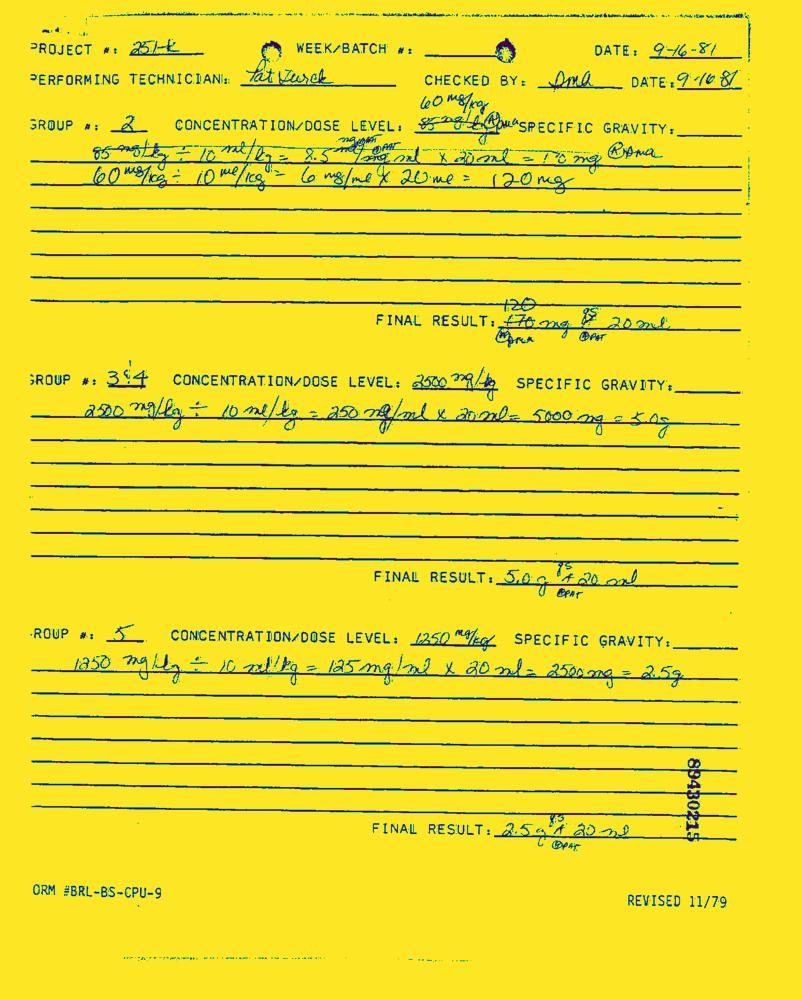 PROJECT #: 251-K WEEK/BATCH #: DATE: 9-16-81
PERFORMING TECHNICIAN: Pat CHECKED BY: DMA DATE: 9-16-81
60 mg/kg
GROUP #: 2 CONCENTRATION/DOSE LEVEL: 85 mg/kg DMA SPECIFIC GRAVITY:
85 mg/kg ÷ 10 ml/kg = 8.5 mg/ml x 20 ml = 170 mg DMA
60 mg/kg ÷ 10 ml/kg = 6 mg/ml x 20 ml = 120 mg
120
FINAL RESULT: 170 mg qs 20 ml
DMA PAT
GROUP #: 3 & 4 CONCENTRATION/DOSE LEVEL: 2500 mg/kg SPECIFIC GRAVITY:
2500 mg/kg ÷ 10 ml/kg = 250 mg/ml x 20 ml = 5000 mg = 5.0g
FINAL RESULT: 5.0 g qs 20 ml
PAT
ROUP #: 5 CONCENTRATION/DOSE LEVEL: 1250 mg/kg SPECIFIC GRAVITY:
1250 mg/kg ÷ 10 ml/kg = 125 mg/ml x 20 ml = 2500 mg = 2.5g
89430215
FINAL RESULT: 2.5 g qs 20 ml
PAT
ORM #BRL-BS-CPU-9 REVISED 11/79